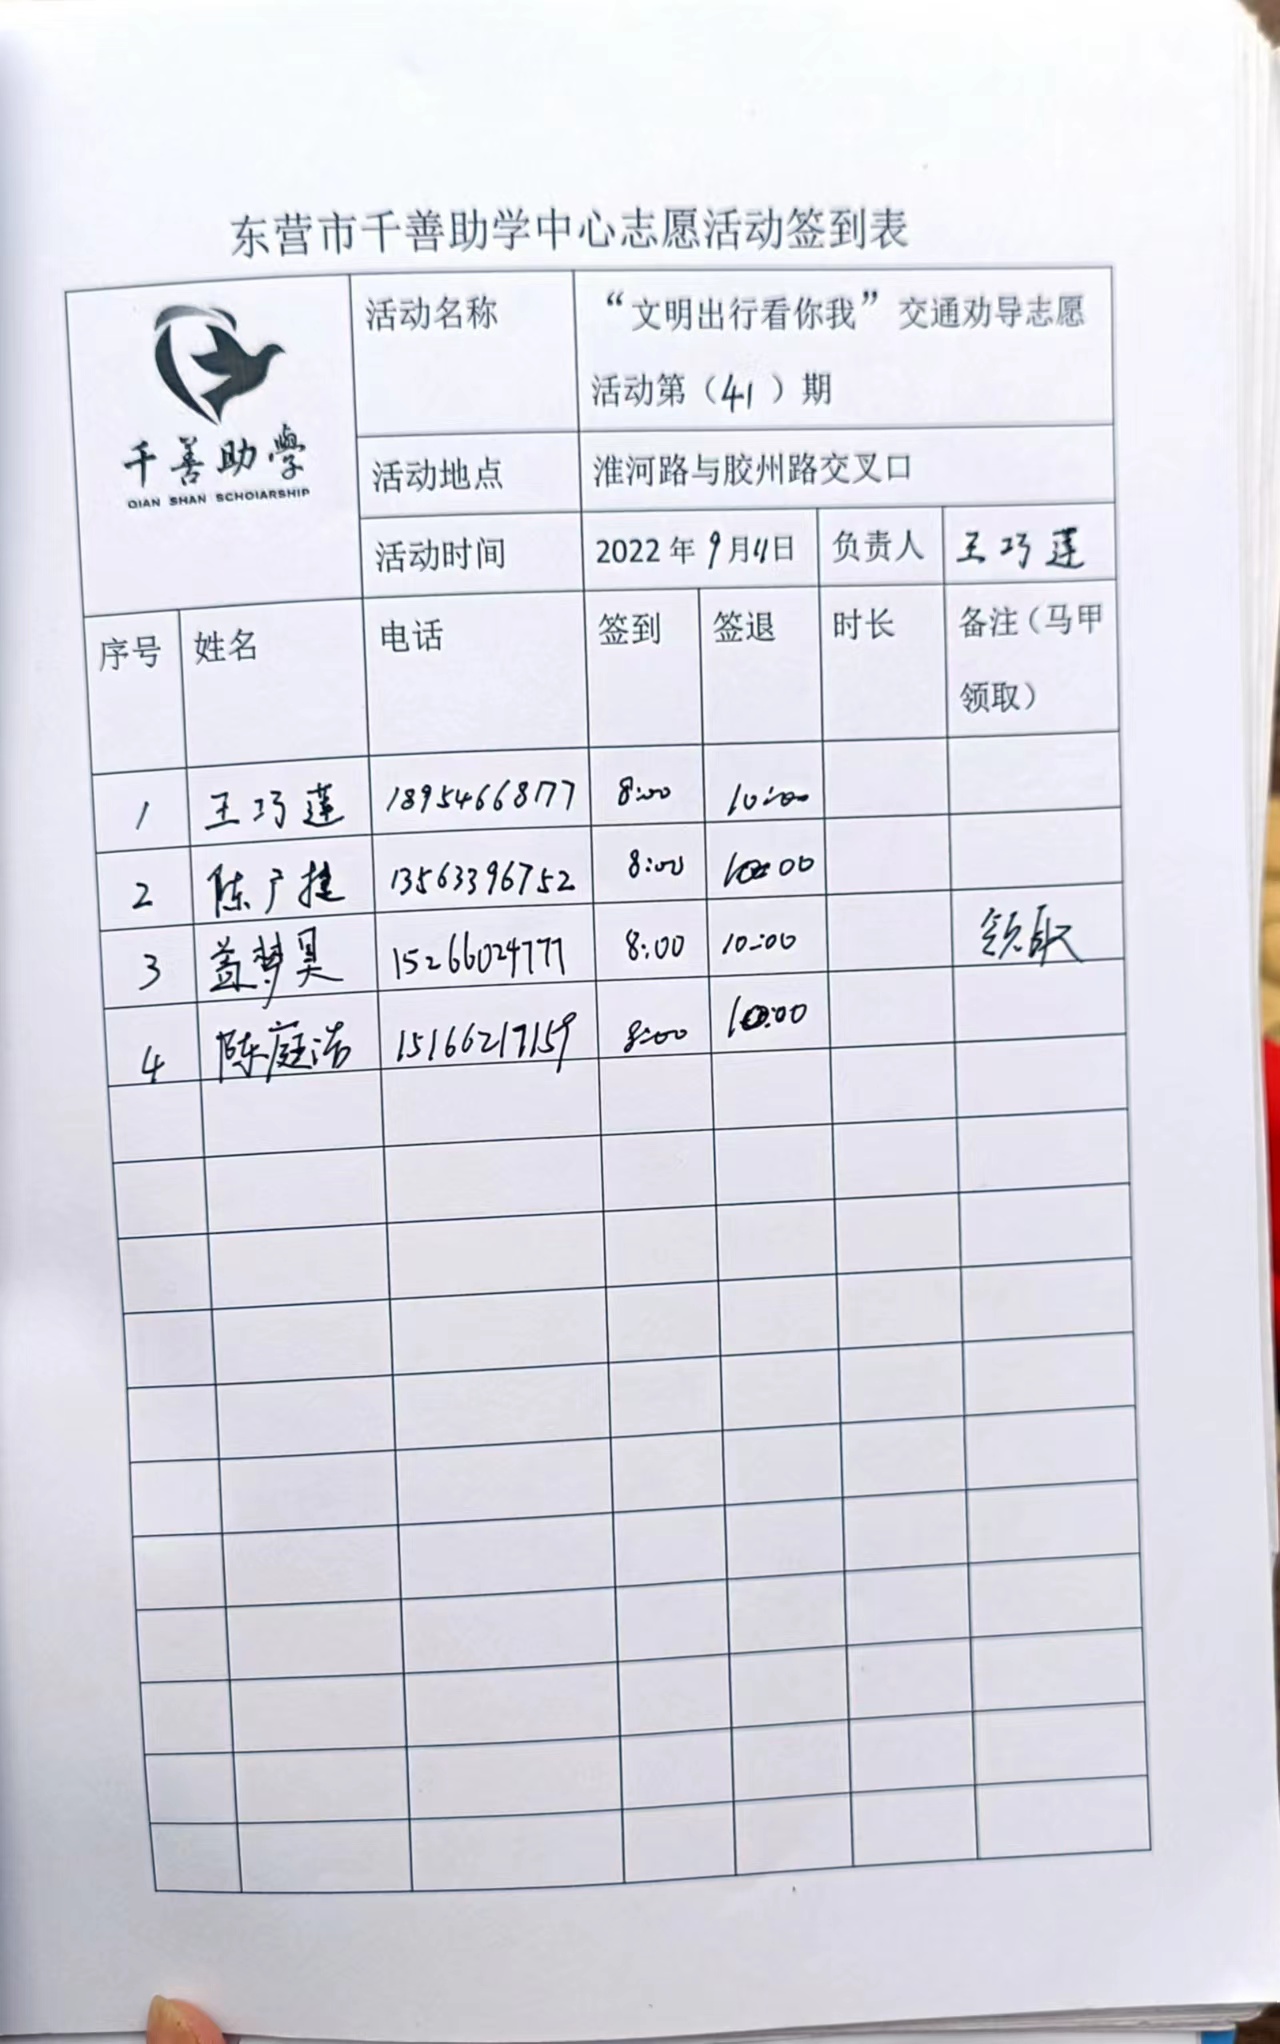 东营市千善助学中心志愿活动签到表
千善助學
QIAN SHAN SCHOlARSHIP
活动名称 “文明出行看你我”交通劝导志愿
活动第（41）期
活动地点 淮河路与胶州路交叉口
活动时间 2022年9月11日 负责人 王巧莲
序号 姓名 电话 签到 签退 时长 备注（马甲
领取）
1 王巧莲 18954668777 8:00 10:00
2 陈广捷 13563396752 8:00 10:00
3 盖梦昊 15266024777 8:00 10:00 领取
4 陈庭浩 15166217159 8:00 10:00